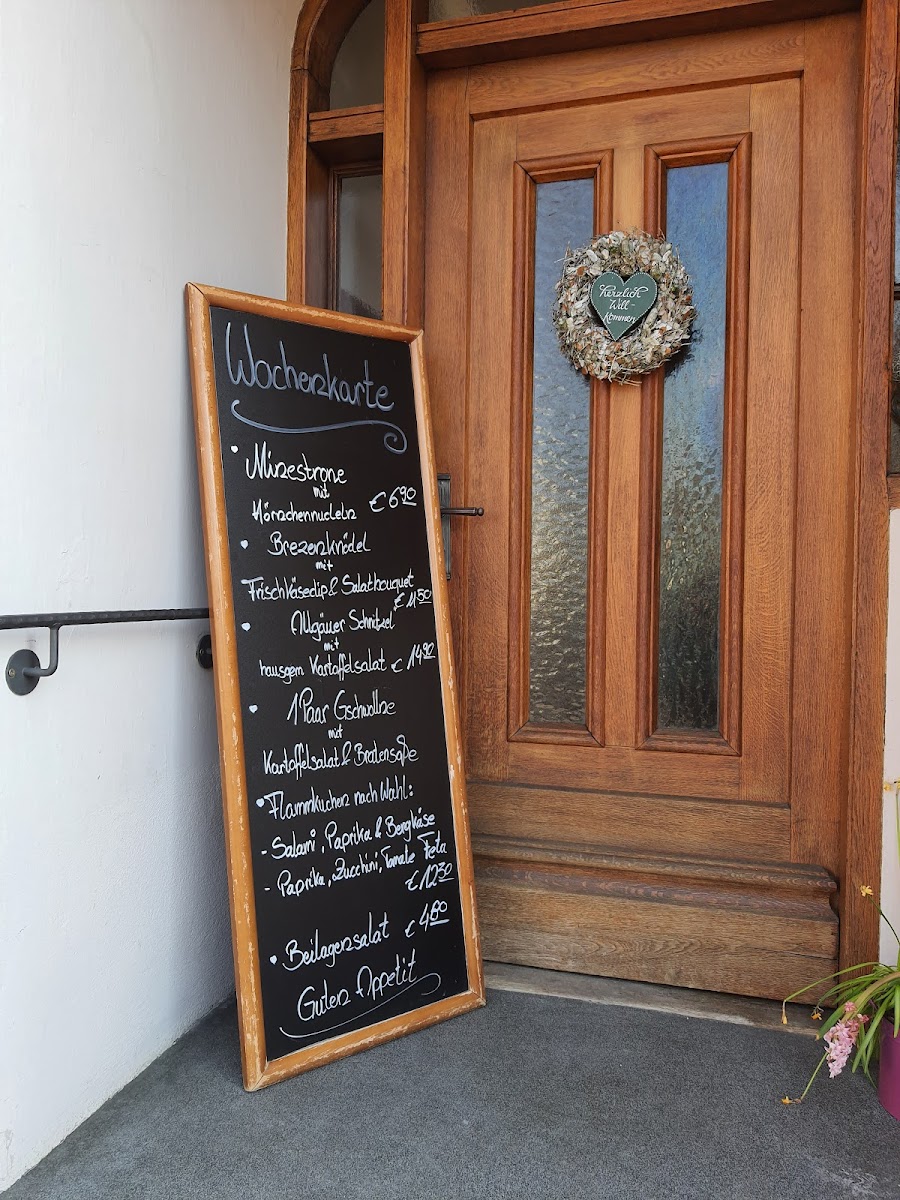 Herzlich
Will-
kommen
Wochenkarte
Minestrone
mit
Hörnchennudeln € 6.90
Brezenknödel
mit
Frischkäsedip & Salatbouquet
€ 11.50
Allgäuer Schnitzel
mit
hausgem. Kartoffelsalat € 14.90
1 Paar Gschwollne
mit
Kartoffelsalat & Bratensoße
Flammkuchen nach Wahl:
- Salami, Paprika & Bergkäse
- Paprika, Zucchini, Tomate Feta
€ 12.30
Beilagensalat € 4.80
Guten Appetit